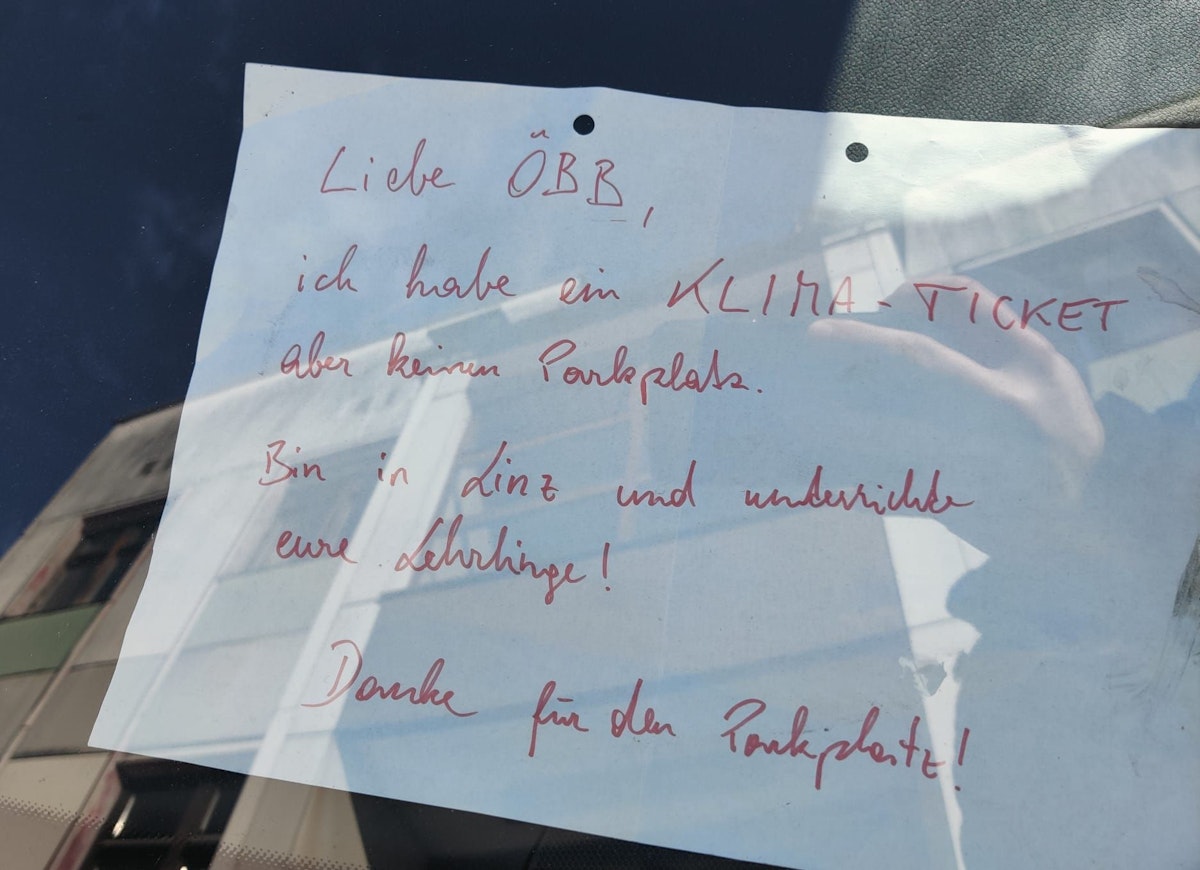 Liebe ÖBB,
ich habe ein KLIMA-TICKET
aber keinen Parkplatz.
Bin in Linz und unterrichte
eure Lehrlinge!
Danke für den Parkplatz!